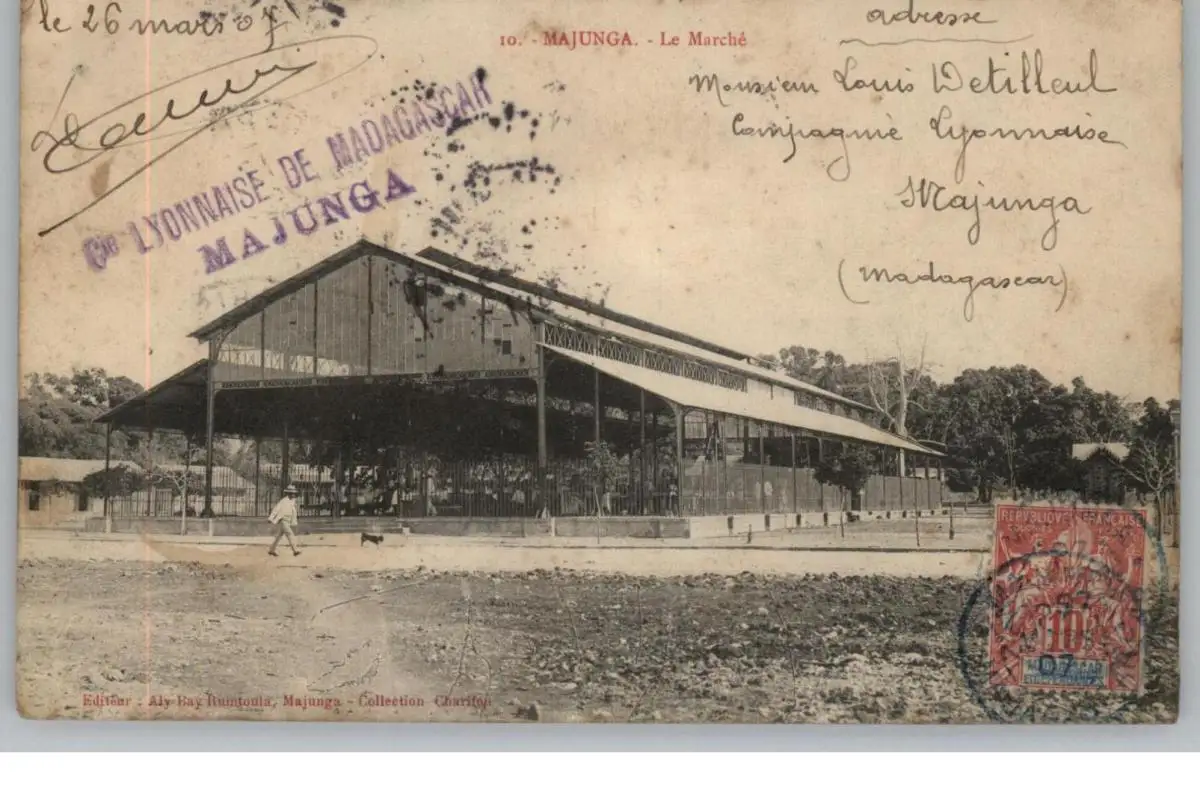 le 26 mars 07
10. - MAJUNGA. - Le Marché
adresse
Monsieur Louis Detilleul
Compagnie Lyonnaise
Majunga
(Madagascar)
Cie LYONNAISE DE MADAGASCAR
MAJUNGA
REPUBLIQUE FRANÇAISE
10
MADAGASCAR
07
Editeur : Aly Bay Rumtoula, Majunga - Collection Charifou